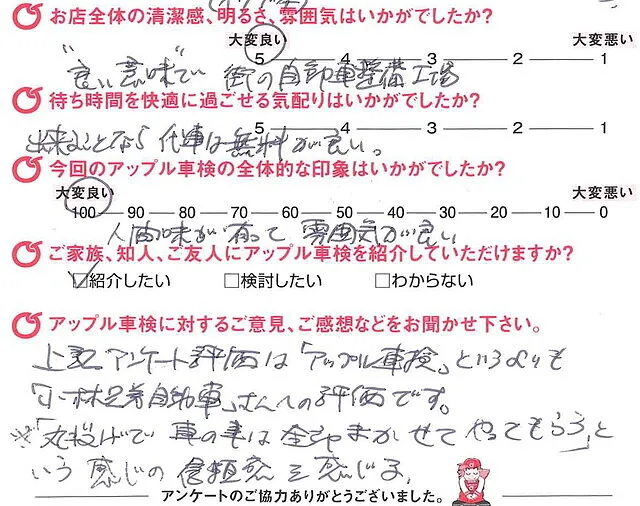 お店全体の清潔感、明るさ、雰囲気はいかがでしたか?
大変良い 大変悪い
5 4 3 2 1
"良い意味"で 街の自動車整備工場
待ち時間を快適に過ごせる気配りはいかがでしたか?
5 4 3 2 1
出来ることなら 代車は無料が良い。
今回のアップル車検の全体的な印象はいかがでしたか?
大変良い 大変悪い
100 90 80 70 60 50 40 30 20 10 0
人間味が有って 雰囲気が良い
ご家族、知人、ご友人にアップル車検を紹介していただけますか?
☑紹介したい □検討したい □わからない
アップル車検に対するご意見、ご感想などをお聞かせ下さい。
上記アンケート評価は「アップル車検」というよりも
「小林兄弟自動車」さんへの評価です。
※「丸投げで 車の事は全部まかせてやってもらう」と
いう感じの信頼感を感じる。
アンケートのご協力ありがとうございました。